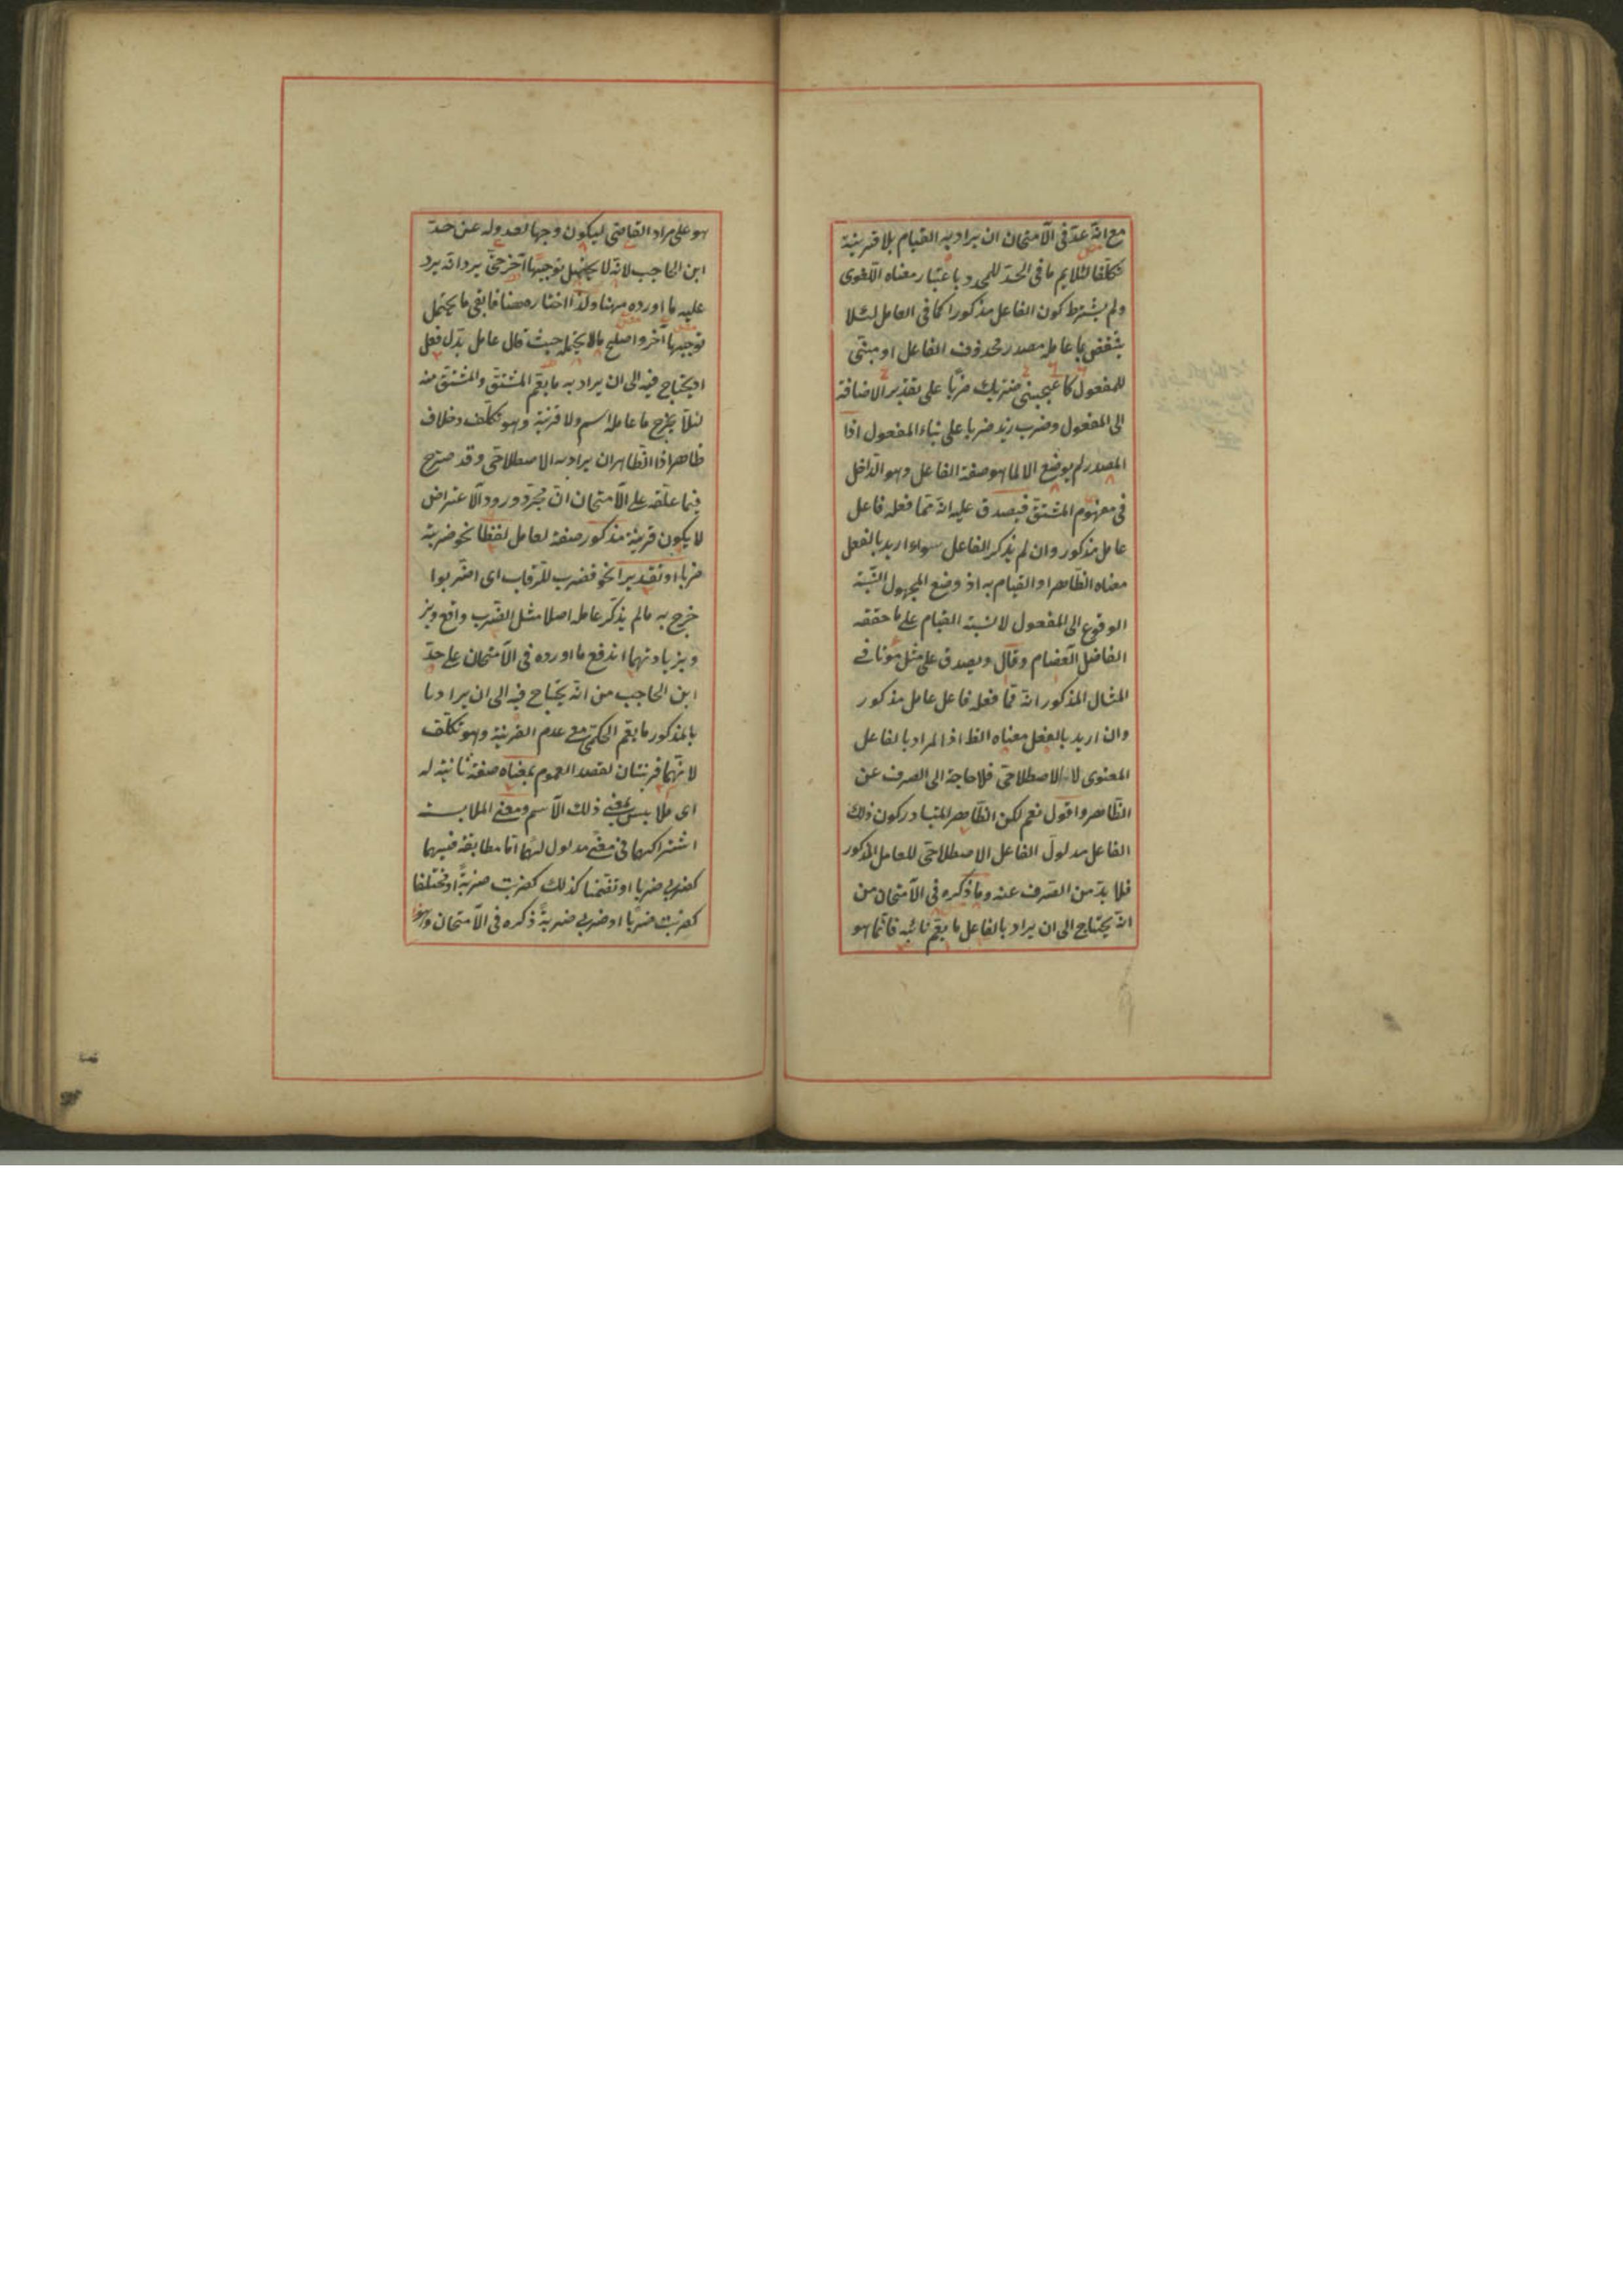 مع انّه عدّ فى الامتحان ان يراد به القيام بلا قرينة
تكلّفا لئلايم ما فى الحدّ للمحدود باعتبار معناه اللّغوى
ولم يشترط كون الفاعل مذكورا كما فى العامل لئلا
ينتقض بما عامله مصدر محذوف الفاعل او مبنىّ
للمفعول كاعجبنى ضربك ضربا على تقدير الاضافة
الى المفعول وضرب زيد ضربا على بناء المفعول اذا
المصدر لم يوضع الا لما هو صفة الفاعل وهو الدّاخل
فى مفهوم المشتق فيصدق عليه انّه ممّا فعله فاعل
عامل مذكور وان لم يذكر الفاعل سواء اريد بالفعل
معناه الظّاهر او القيام به اذ وضع المجهول لنسبة
الوقوع الى المفعول لا لنسبة القيام على ما حققه
الفاضل العصام وقال ويصدق على مثل موتا فى
المثال المذكور انّه ممّا فعله فاعل عامل مذكور
وان اريد بالفعل معناه الظ اذا المراد بالفاعل
المعنوى لا الاصطلاحىّ فلا حاجة الى الصرف عن
الظّاهر واقول نعم لكن الظّاهر المتبادر كون ذلك
الفاعل مدلول الفاعل الاصطلاحىّ للعامل المذكور
فلا بدّ من الصّرف عنه وما ذكره فى الامتحان من
انّه يحتاج الى ان يراد بالفاعل ما يعمّ نائبه فانّما هو
هو على مراد القاضى ليكون وجها لعدوله عن حدّ
ابن الحاجب لانّه لا يحتمل توجيها آخر حتّى يرد انّه يرد
عليه ما اورده ههنا ولذا اختاره مصنا فابقى ما يحتمل
توجيها آخر واصلح ما لا يحتمله حيث قال عامل بدل فعل
اذ يحتاج فيه الى ان يراد به ما يعمّ المشتقّ والمشتقّ منه
لئلّا يخرج ما عامله اسم ولا قرينة وهو تكلّف وخلاف
ظاهر اذا الظّاهر ان يراد به الاصطلاحىّ وقد صرّح
فيما علّقه على الامتحان انّ مجرّد ورود الاعتراض
لا يكون قرينة مذكور صفة لعامل لفظا نحو ضربته
ضربا او تقديرا نحو فضرب الرّقاب اى اضربوا
خرج به ما لم يذكر عامله اصلا مثل الضّرب واقع وبز
وبزيادتهما اندفع ما اورده فى الامتحان على حدّ
ابن الحاجب من انّه يحتاج فيه الى ان يراد با
بالمذكور ما يعمّ الحكمىّ مع عدم القرينة وهو تكلّف
لانّهما قرينتان لقصد العموم بمعناه صفة ثانية له
اى ملابس بمعنى ذلك الاسم ومعنى الملابسة
اشتراكهما فى معنى مدلول لهما امّا مطابقة فيهما
كضربى ضربا او تضمّنا كذلك كضربت ضربةً او مختلفا
كضربت ضربًا او ضربى ضربةً ذكره فى الامتحان وهو